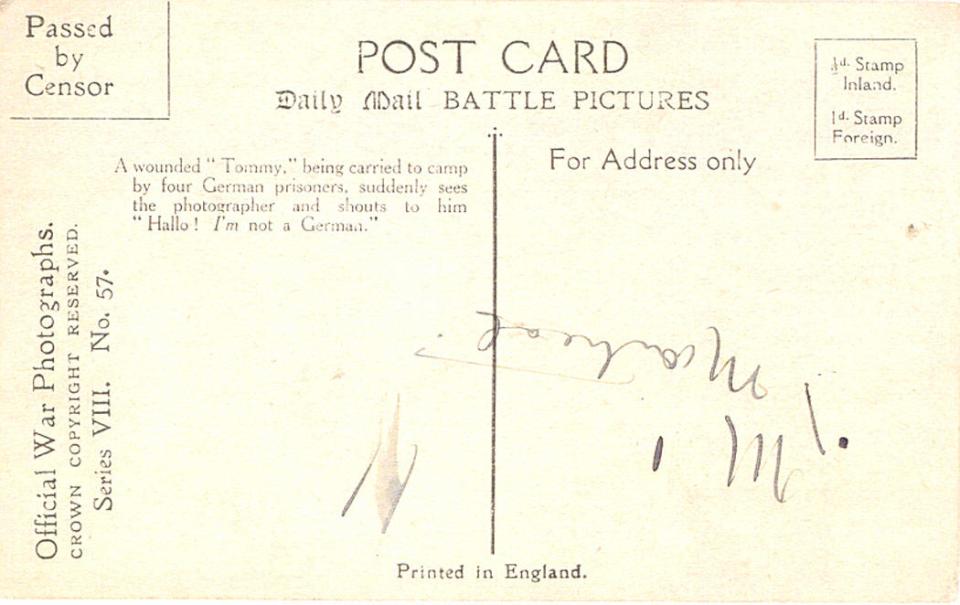 Passed
by
Censor
POST CARD
Daily Mail BATTLE PICTURES
½d. Stamp
Inland.
1d. Stamp
Foreign.
A wounded “ Tommy,” being carried to camp
by four German prisoners, suddenly sees
the photographer and shouts to him
“ Hallo ! I’m not a German.”
For Address only
Official War Photographs.
CROWN COPYRIGHT RESERVED.
Series VIII. No. 57.
Printed in England.